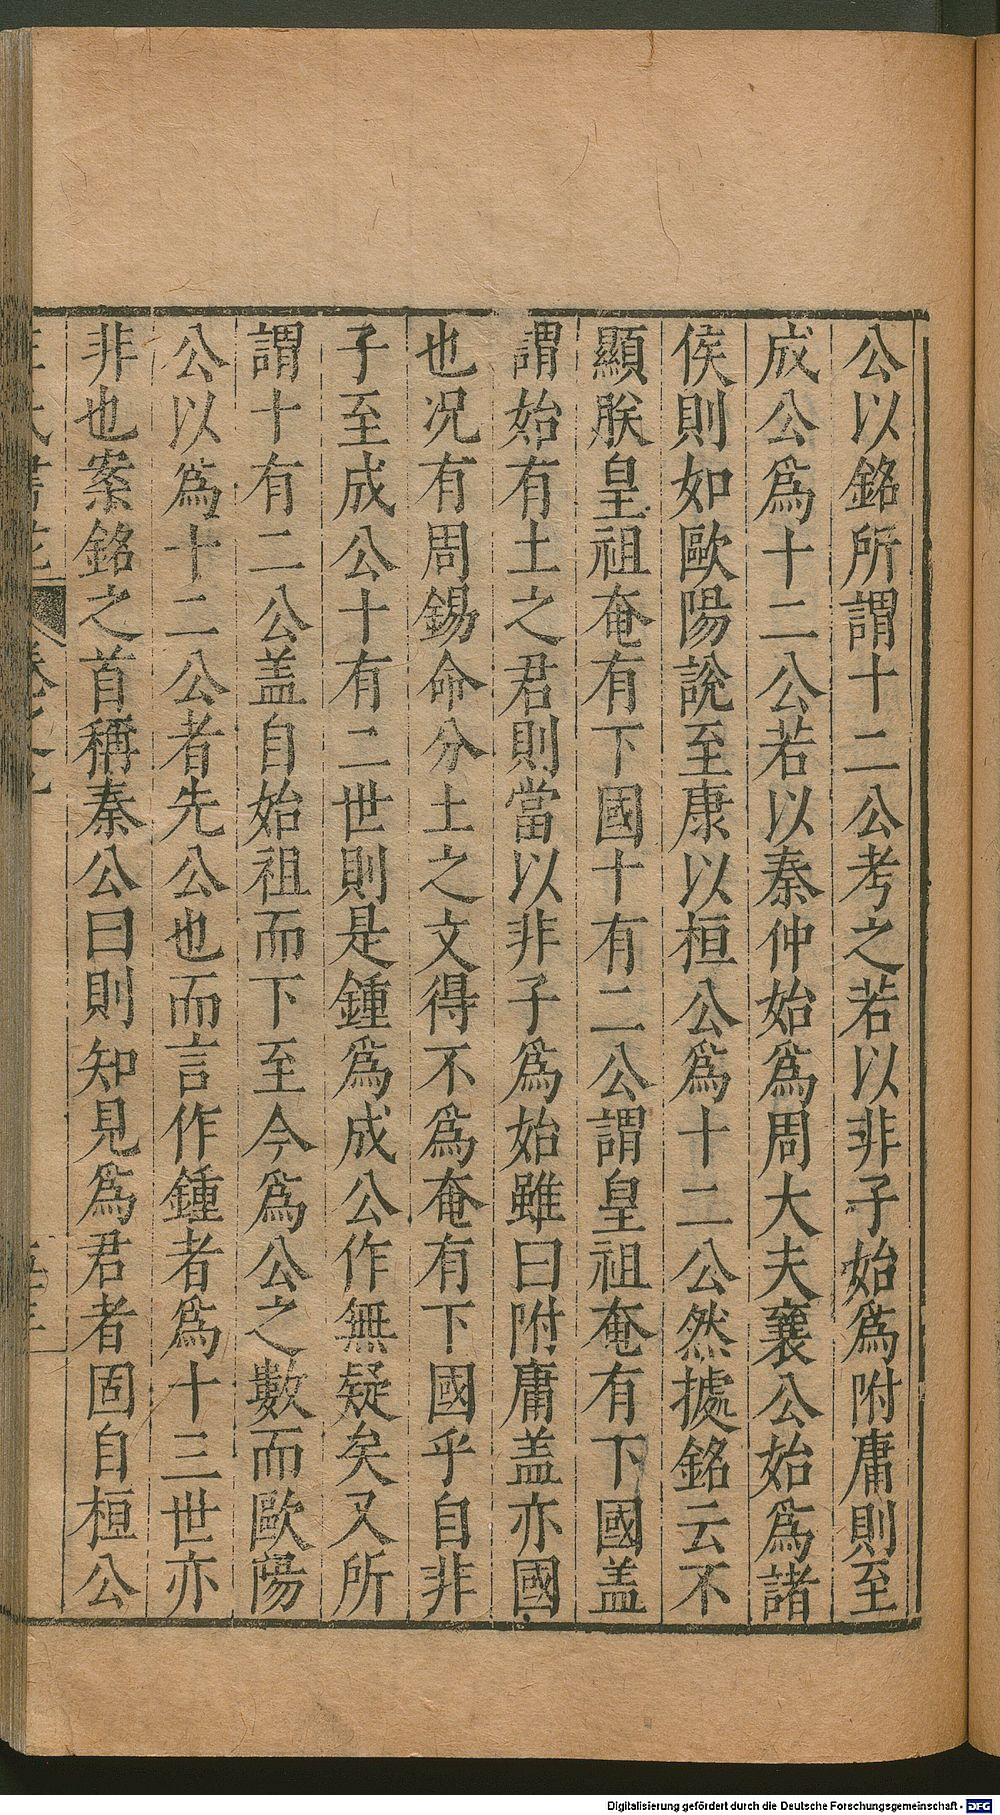 公以銘所謂十二公考之若以非子始爲附庸則至
成公爲十二公若以秦仲始爲周大夫襄公始爲諸
侯則如歐陽說至康以桓公爲十二公然據銘云不
顯朕皇祖奄有下國十有二公謂皇祖奄有下國盖
謂始有土之君則當以非子爲始雖曰附庸盖亦國
也况有周錫命分土之文得不爲奄有下國乎自非
子至成公十有二世則是鍾爲成公作無疑矣又所
謂十有二公盖自始祖而下至今爲公之數而歐陽
公以爲十二公者先公也而言作鍾者爲十三世亦
非也案銘之首稱秦公曰則知見爲君者固自桓公
Digitalisierung gefördert durch die Deutsche Forschungsgemeinschaft - DFG